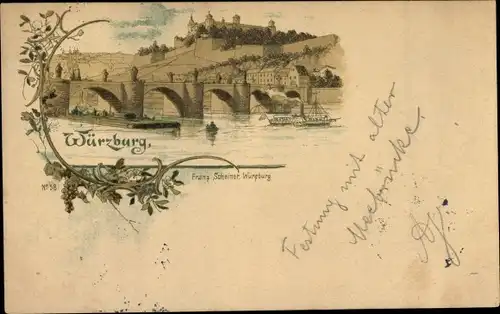 Würzburg.
Nº 58
Franz Scheiner, Würzburg
Festung mit alter
Mainbrücke.